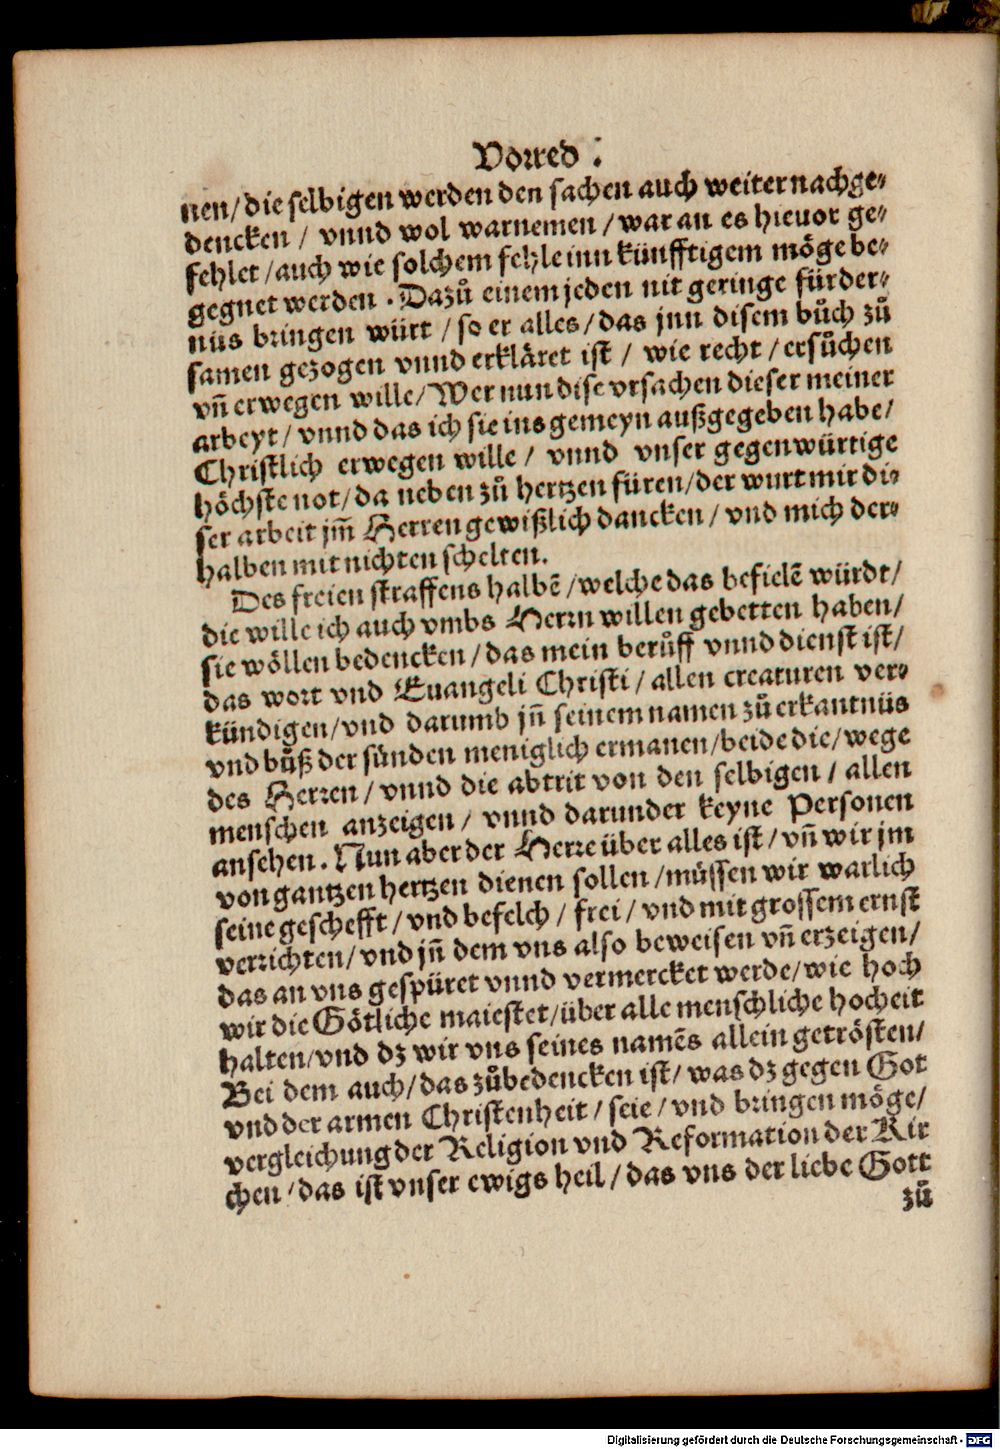 Vorred.
nen/ die selbigen werden den sachen auch weiter nachge⸗
dencken / vnnd wol warnemen / war an es hieuor ge⸗
fehlet / auch wie solchem fehle inn künfftigem möge be⸗
gegnet werden. Dazů einem jeden nit geringe fürder⸗
nüs bringen würt / so er alles / das jnn disem bůch zů
samen gezogen vnnd erkläret ist / wie recht / ersůchen
vñ erwegen wille/ Wer nun dise vrsachen dieser meiner
arbeyt / vnnd das ich sie ins gemeyn außgegeben habe/
Christlich erwegen wille / vnnd vnser gegenwürtige
höchste not/ da neben zů hertzen füren/ der wurt mir di⸗
ser arbeit jm̃ Herren gewißlich dancken / vnd mich der⸗
halben mit nichten schelten.
Des freien straffens halbẽ / welche das befielẽ würdt/
die wille ich auch vmbs Herrn willen gebetten haben/
sie wöllen bedencken / das mein berůff vnnd dienst ist/
das wort vnd Euangeli Christi / allen creaturen ver⸗
kündigen/ vnd darumb jñ seinem namen zů erkantnüs
vnd bůß der sünden meniglich ermanen/ beide die/ wege
des Herren / vnnd die abtrit von den selbigen / allen
menschen anzeigen / vnnd darunder keyne Personen
ansehen. Nun aber der Herre über alles ist / vñ wir jm
von gantzen hertzen dienen sollen / müssen wir warlich
seine geschefft / vnd befelch / frei / vnd mit grossem ernst
verrichten/ vnd jñ dem vns also beweisen vñ erzeigen/
das an vns gespüret vnnd vermercket werde/ wie hoch
wir die Götliche maiestet/ über alle menschliche hocheit
halten/ vnd dz wir vns seines namẽs allein getrösten/
Bei dem auch/ das zůbedencken ist/ was dz gegen Got
vnd der armen Christenheit / seie / vnd bringen möge/
vergleichung der Religion vnd Reformation der Kir
chen / das ist vnser ewigs heil / das vns der liebe Gott
zů
Digitalisierung gefördert durch die Deutsche Forschungsgemeinschaft - DFG